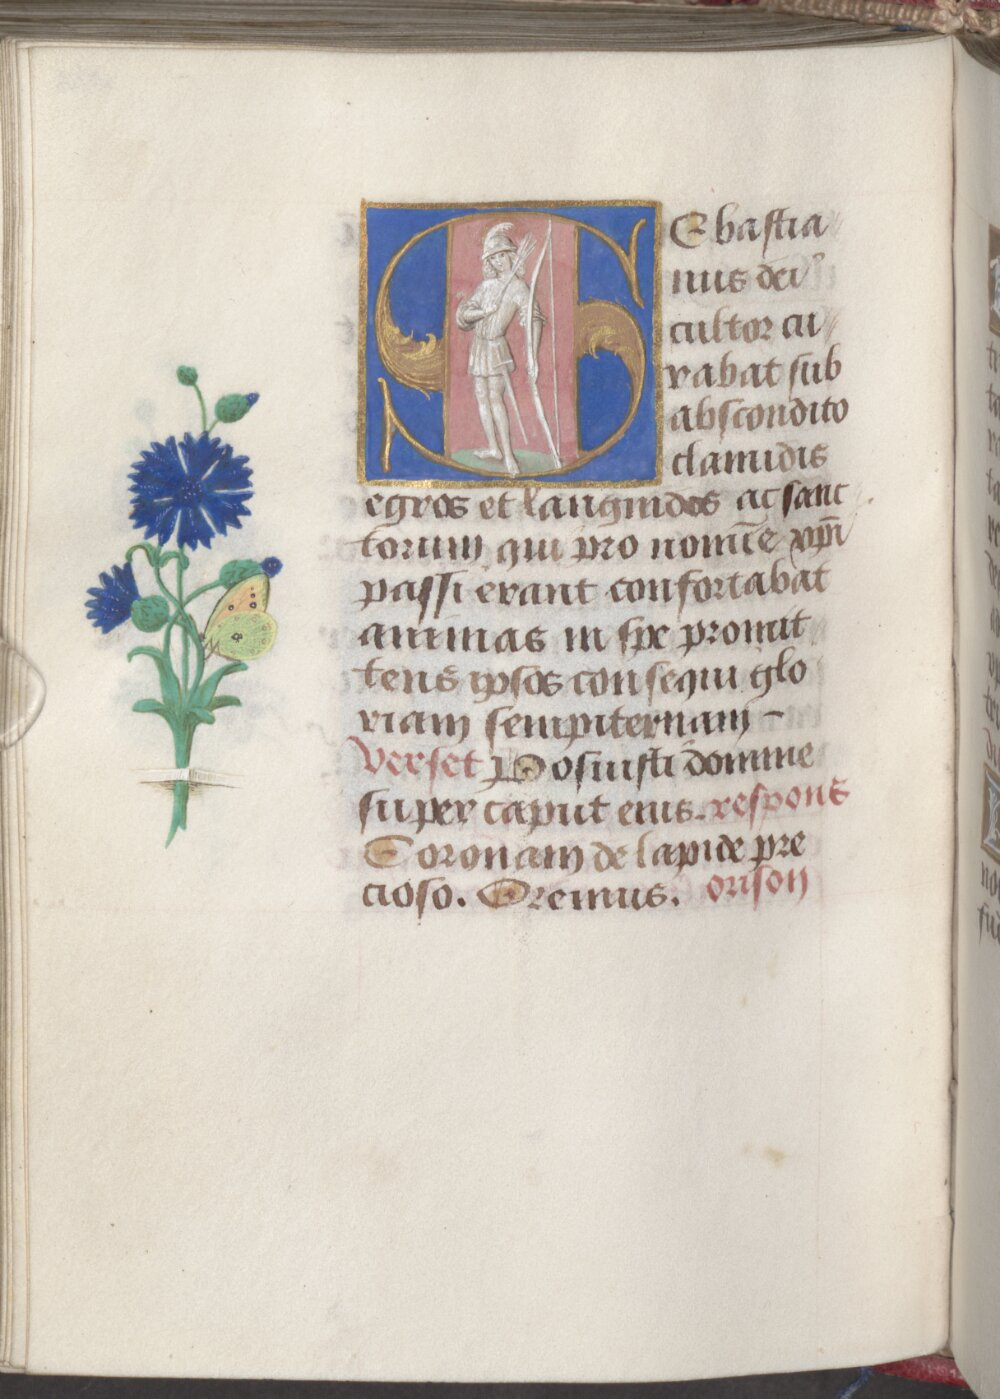 Sebastia
nus dei
cultor cu
rabat sub
abscondito
clamidis
egros et languidos ac sanc
torum qui pro nomīe xp̄i
passi erant confortabat
animas in spe promit
tens ipsos consequi glo
riam sempiternam –
Verset Posuisti domine
super caput eius. respons
Coronam de lapide pre
cioso. Oremus. orison